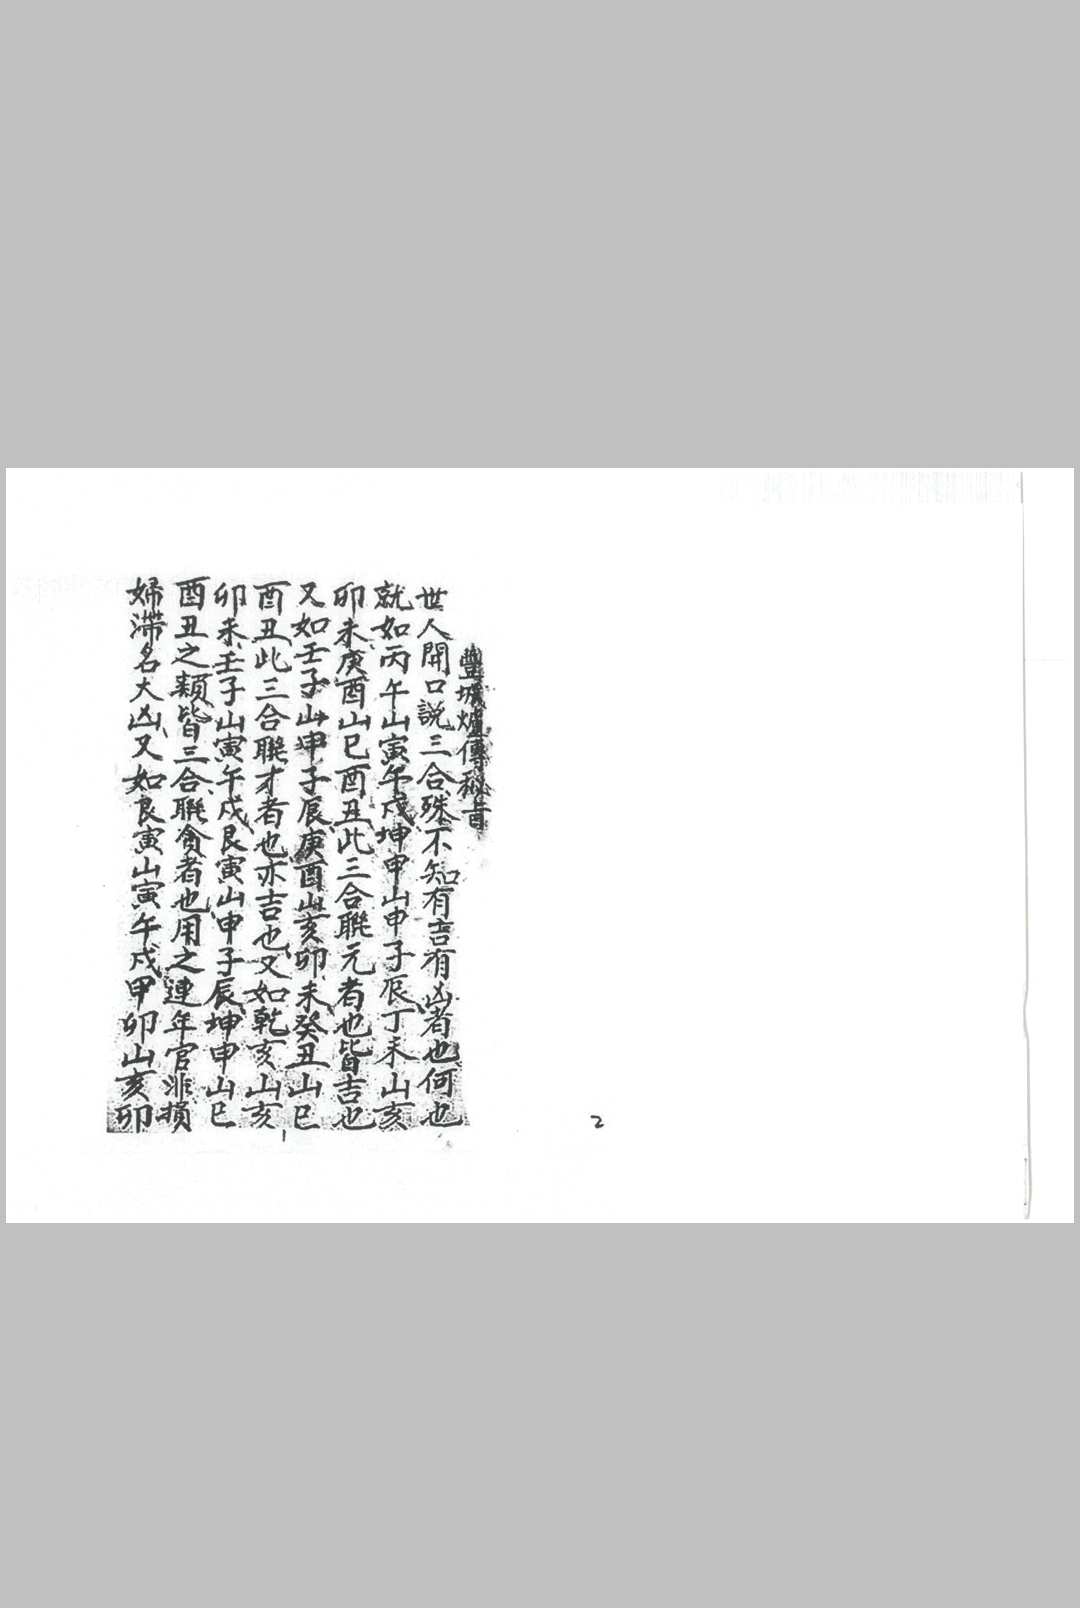 豐城爐傳秘旨
世人開口說三合殊不知有吉有凶者也何也
就如丙午山寅午戍坤申山申子辰丁未山亥
卯未庚酉山巳酉丑此三合聯元者也皆吉也
又如壬子山申子辰庚酉山亥卯未癸丑山巳
酉丑此三合聯才者也亦吉也又如乾亥山亥
卯未壬子山寅午戍艮寅山申子辰坤申山巳
酉丑之類皆三合聯貪者也用之連年官非損
婦滯名大凶又如艮寅山寅午戍甲卯山亥卯
1
2